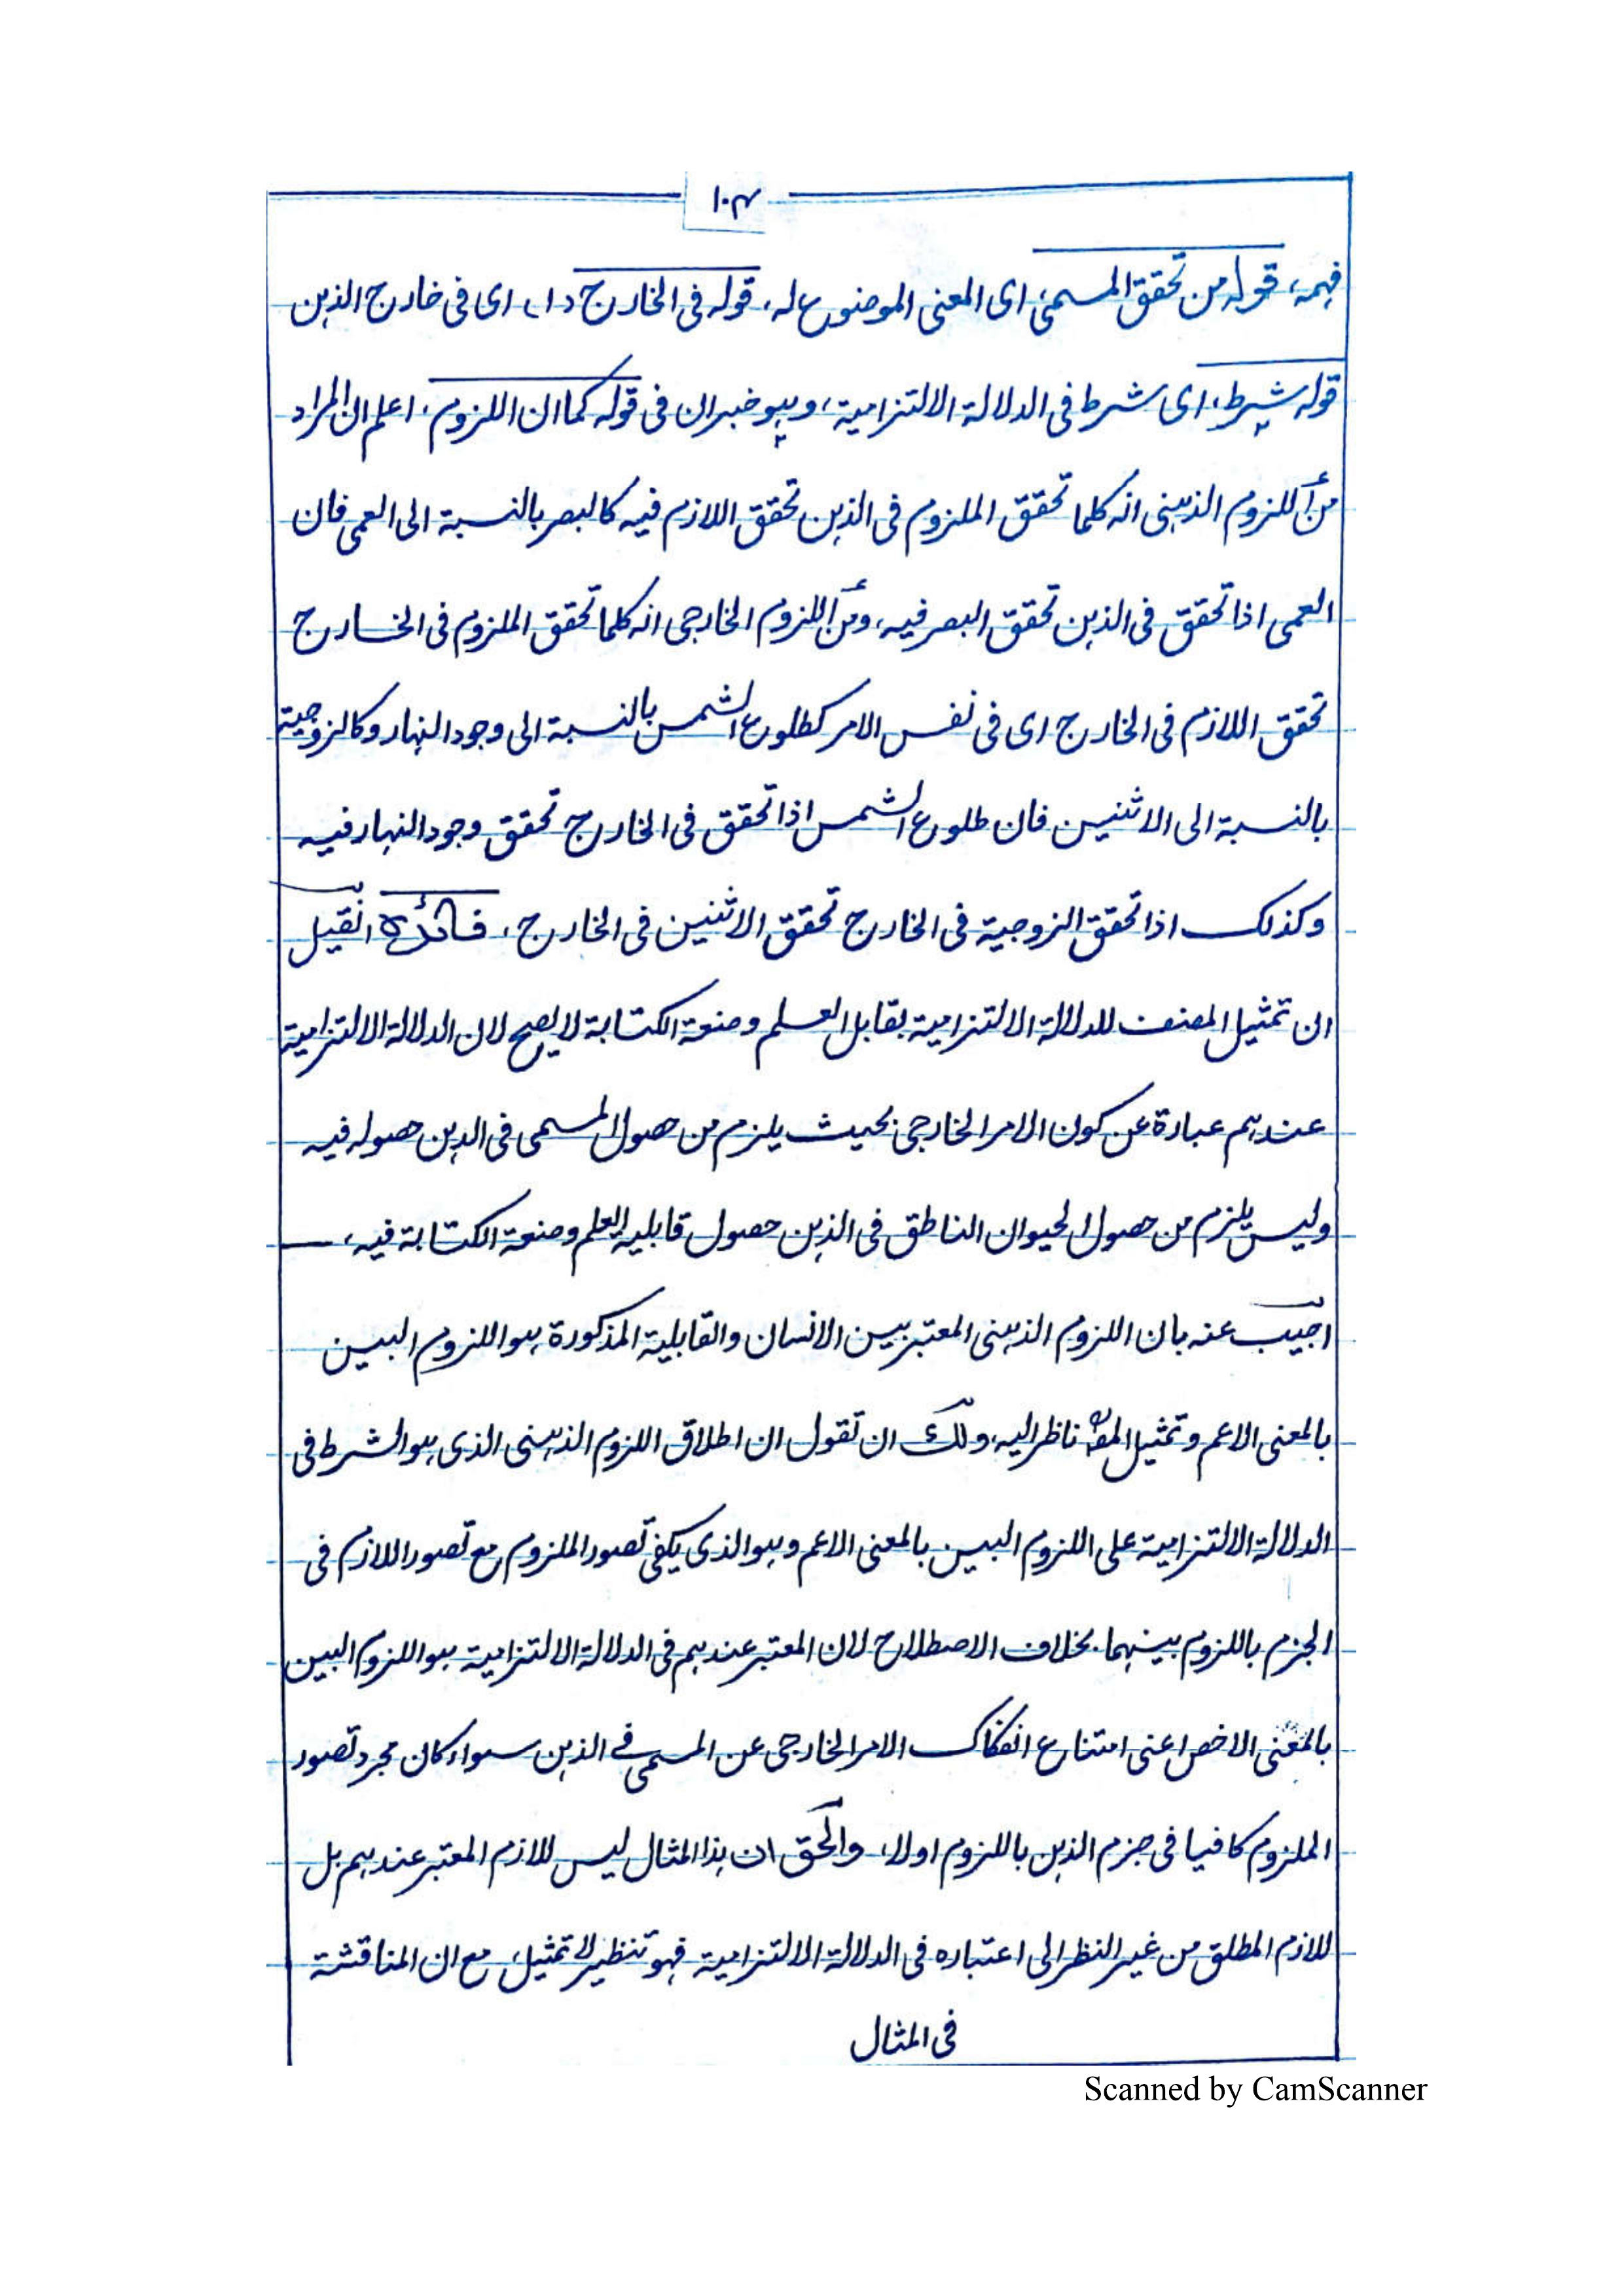 ١٠٣
فهمه، قوله من تحقق المسمى، اى المعنى الموضوع له، قوله فى الخارج د ا، اى فى خارج الذهن
قوله شرط، اى شرط فى الدلالة الالتزامية، وهو خبر ان فى قوله كما ان اللزوم، اعلم ان المراد
من اللزوم الذهنى انه كلما تحقق الملزوم فى الذهن تحقق اللازم فيه كالبصر بالنسبة الى العمى فان
العمى اذا تحقق فى الذهن تحقق البصر فيه، ومن اللزوم الخارجى انه كلما تحقق الملزوم فى الخارج
تحقق اللازم فى الخارج اى فى نفس الامر كطلوع الشمس بالنسبة الى وجود النهار وكالزوجية
بالنسبة الى الاثنين فان طلوع الشمس اذا تحقق فى الخارج تحقق وجود النهار فيه
وكذلك اذا تحقق الزوجية فى الخارج تحقق الاثنين فى الخارج، فائدة ان قيل
ان تمثيل المصنف للدلالة الالتزامية بقابل العلم وصنعة الكتابة لا يصح لان الدلالة الالتزامية
عندهم عبارة عن كون الامر الخارجى بحيث يلزم من حصول المسمى فى الذهن حصوله فيه
وليس يلزم من حصول الحيوان الناطق فى الذهن حصول قابلية العلم وصنعة الكتابة فيه،
اجيب عنه بان اللزوم الذهنى المعتبر بين الانسان والقابلية المذكورة هو اللزوم البين
بالمعنى الاعم وتمثيل المص ناظر اليه، ولك ان تقول ان اطلاق اللزوم الذهنى الذى هو الشرط فى
الدلالة الالتزامية على اللزوم البين بالمعنى الاعم وهو الذى يكفى تصور الملزوم مع تصور اللازم فى
الجزم باللزوم بينهما بخلاف الاصطلاح لان المعتبر عندهم فى الدلالة الالتزامية هو اللزوم البين
بالمعنى الاخص اعنى امتناع انفكاك الامر الخارجى عن المسمى فى الذهن سواء كان مجرد تصور
الملزوم كافيا فى جزم الذهن باللزوم اولا، والحق ان هذا المثال ليس للازم المعتبر عندهم بل
للازم المطلق من غير النظر الى اعتباره فى الدلالة الالتزامية فهو تنظير لا تمثيل، مع ان المناقشة
فى المثال
Scanned by CamScanner